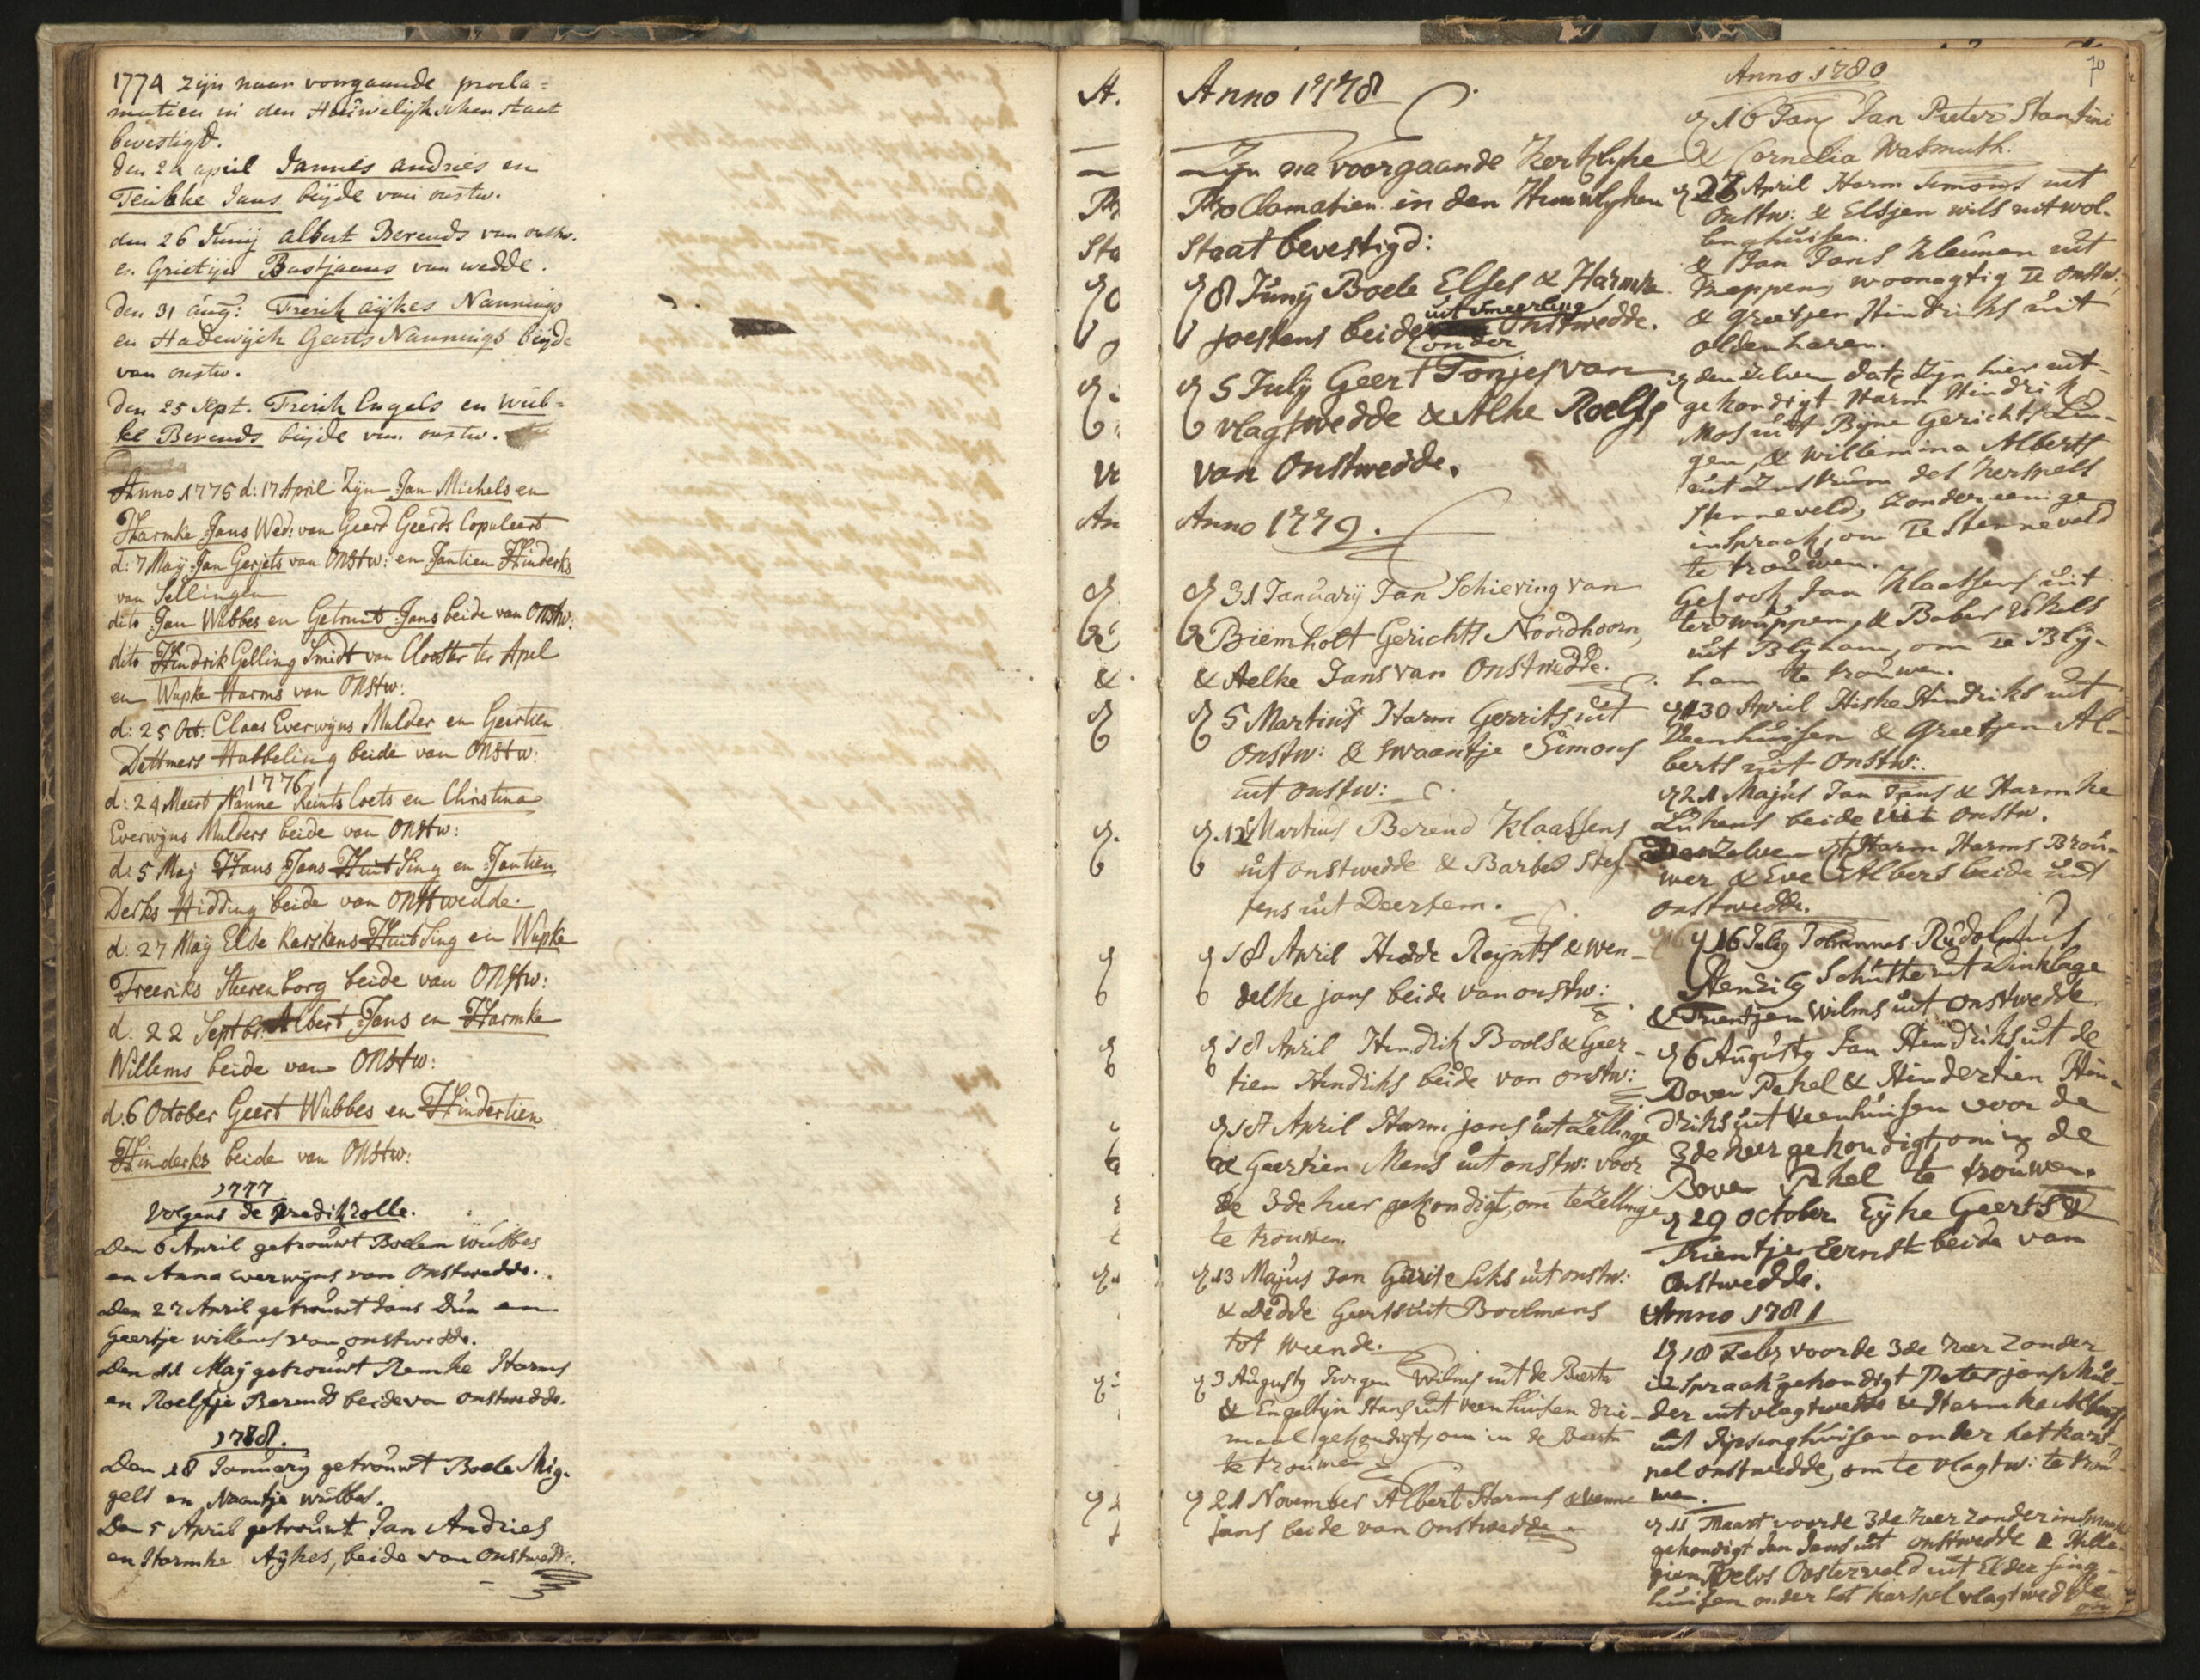 1774 zijn naar voorgaande procla=
matien in den Houwelijkschen staat
bevestigt.
den 24 april Jannes andries en
Teikke Jans beijde van onstw.
den 26 Junij albert Berends van onstw.
en Grietijn Bastjaans van wedde.
den 31 aug: Frerik aijkes Nannings
en Hadewijch Geerts Nannings beijde
van onstw.
den 25 sept. Frerik Engels en Wub=
ke Berends beijde van onstw.
Anno 1775 d: 17 April Zijn Jan Michels en
Harmke Jans Wed: van Geerd Geerds Copuleert
d: 7 Maÿ Jan Gerjets van Onstw: en Jantien Hinderks
van Sellingen
dito Jan Wubbes en Getruit Jans beide van Onstw:
dito Hindrik Gelling Smidt van Clooster ter Apel
en Wupke Harms van Onstw:
d: 25 Oct: Claas Everwijns Mulder en Geertien
Dettmers Hubbeling beide van Onstw:
1776
d: 24 Meert Nanne Reints Coets en Christina
Everwijns Mulders beide van Onstw:
d: 5 Maj Hans Jans Huitsing en Jantien
Derks Hidding beide van Onstwedde.
d: 27 Maÿ Else Karskens Huitsing en Wupke
Freeriks Sterenborg beide van Onstw:
d. 22 Septbr. Albert Jans en Harmke
Willems beide van Onstw:
d: 6 October Geert Wubbes en Hindertien
Hinderks beide van Onstw:
1777
Volgens de Predikrolle.
Den 6 April getrouwt Boelem Wubbes
en Anna Everwijns van Onstwedde.
Den 27 April getrouwt Jans Dun en
Geertje willems van onstwedde.
Den 11 Maÿ getrouwt Remke Harms
en Roelfje Berends beide van onstwedde.
1778.
Den 18 January getrouwt Boele Mig-
gels en Naantje wubbes.
Den 5 April getrouwt Jan Andries
en Harmke Aÿkes, beide van Onstwedde.
Anno 1778
Zijn na voorgaande Kerklyke
Proclamatien in den Huwlyken
Staat bevestigd:
8 Junÿ Boele Elses & Harmke
uit smeerling
Joestens beide onder Onstwedde.
5 Julÿ Geert Tonjes van
vlagtwedde & Alke Roelfs
van Onstwedde.
Anno 1779.
31 Januarÿ Jan Schievingvan
Biemholt Gerichts Noordhoorn,
& Aelke Jans van Onstwedde.
5 Martius Harm Gerrits uit
Onstw: & Swaantje Simons
uit onstw:
12 Martius Berend Klaassens
uit onstwedde & Barber Stef-
fens uit Deersem.
18 April Hidde Reynts & wen-
delke jans beide van onstw:
18 April Hendrik Bools & Geer-
tien Hindriks beide van onstw:
18 April Harm jans uit Zellinge
& Geertien Mens uit onstw: voor
de 3de keer gekondigt, om te Zellinge
te trouwen.
13 Majus Jan Gerrits Siks uit onstw:
& Dedde Geerts uit Boelmans
tot weende.
3 Augusty Jurgen Wilms uit de Beerta
& Engeltijn Hans uit veenhuisen drie-
maal gekondigt, om in de Beerta
te trouwen
21 November Albert Harms & wenne
jans beide van Onstwedde
70
Anno 1780
16 Jany Jan Pieter Stantini
& Cornelia Watmuth.
23 April Harm Simons uit
Onstw: & Elsjen wils uit wol-
lenghuisen.
& Jan Jans Kleunen uit
Meppen, woonagtig te onstw:,
& Greetjen Hindriks uit
oldenharen.
den zelven date zijn hier uit-
gekondigt Harm Hindrik
Mos uit Byne Gerichts Lin-
gen, & Willemina Alberts
uit Zustrum des kerspels
Stenneveld, zonder eenige
inspraak, om te Stenneveld
te trouwen.
Gel: ook Jan Klaassens uit
terwuppen, & Baber Eikels
uit Blyham, om te Blÿ-
ham te trouwen.
30 April Hiske Hindriks uit
Veenhuisen & Greetjen Al-
berts uit Onstw:
21 Majus Jan Jans & Harmke
Lukens beide uit onstw.
Den zelven dt Harm Harms Brou-
wer & Eve Albers beide uit
onstwedde.
16 July Johannes Rudolphus
Henzilg Schutte uit Dinklage
& Trientjen Wilms uit onstwedde
6 Augusty Jan Hendriks uit de
Boven Pekel & Hindertien Hin-
driks uit Veenhuisen voor de
3de keer gekondigt, om in de
Boven Pekel te trouwen.
29 October Eyke Geerts &
Trientje Eernst beide van
Onstwedde.
Anno 1781
18 Febr voor de 3de keer zonder
inspraak gekondigt Peter jans Mul-
der uit vlagtwedde & Harmke Alberts
uit Ypsinghuisen onder het kars-
pel onstwedde, om te vlagtw: te trou-
wen.
11 Maart voor de 3de keer zonder inspraak
gekondigt Jan Jans uit onstwedde & Hille-
gien Roelvs Oosterveld uit Elder sing-
huisen onder het karspel vlagtwedde
om